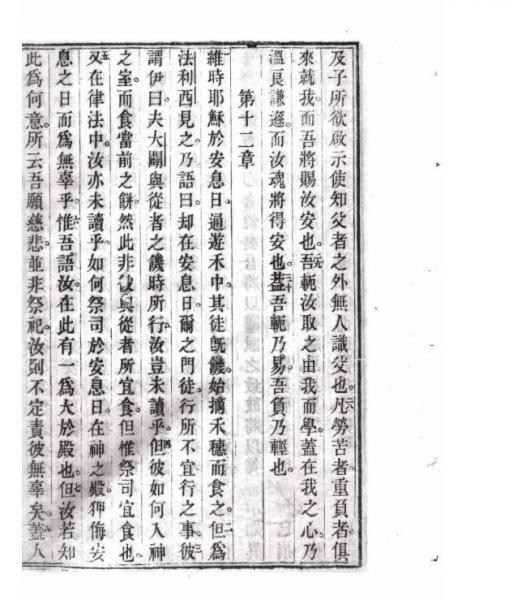 及子所欲啟示使知父者之外無人識父也。凡勞苦者重負者俱
來就我。而吾將賜汝安也。吾軛汝取之。由我而學。蓋在我之心乃
溫良謙遜。而汝魂將得安也。蓋吾軛乃易。吾負乃輕也。
第十二章
維時耶穌於安息日。遍遊禾中。其徒旣饑。始摘禾穗而食之。但爲
法利西見之。乃語曰。却在安息日。爾之門徒。行所不宜行之事。彼
謂伊曰。夫大闢與從者之饑時所行。汝豈未讀乎。但彼如何入神
之室。而食當前之餅。然此非彼與從者所宜食。但惟祭司宜食也。
又在律法中。汝亦未讀乎。如何祭司於安息日。在神之殿。狎侮安
息之日。而爲無辜乎。惟吾語汝。在此有一爲大於殿也。但汝若知
此爲何意。所云吾願慈悲。並非祭祀。汝則不定責彼無辜矣。蓋人